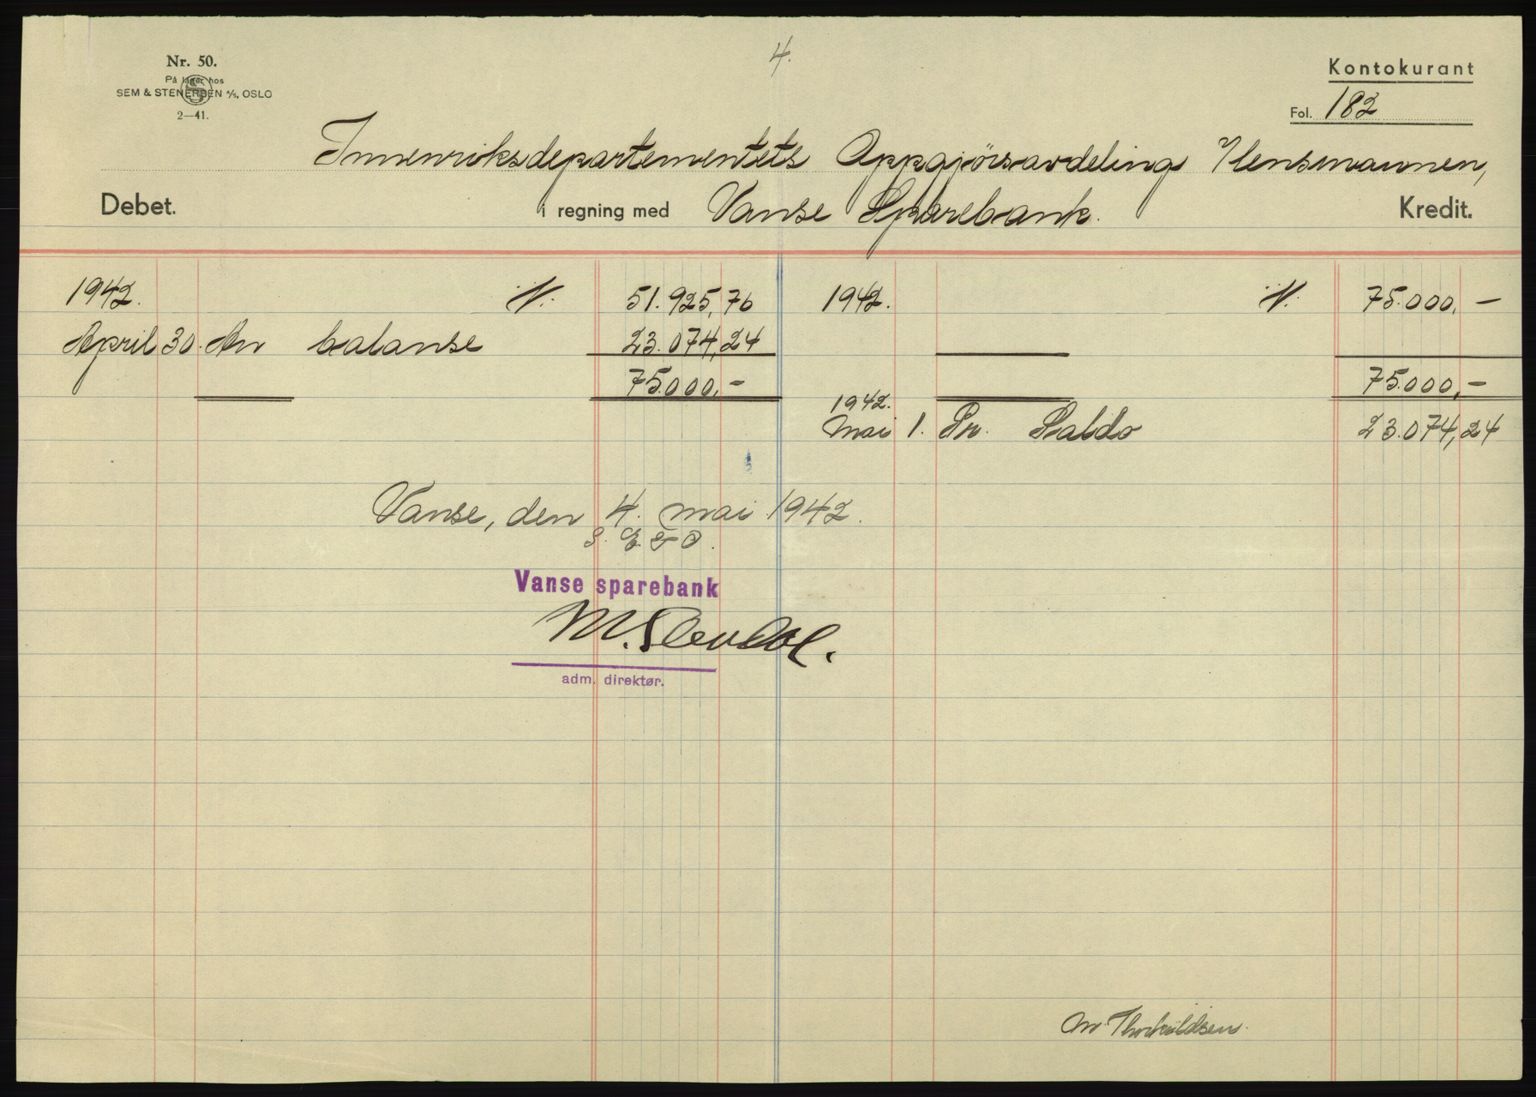 4.
Nr. 50.
På lager hos
SEM & STENERSEN A/S, OSLO
2—41.
Kontokurant
Fol. 182
Innenriksdepartementets Oppgjörsavdeling v/lensmannen,
Debet. i regning med Vanse Sparebank. Kredit.
1942. 51.925,76 1942. 75.000,—
April 30. An balanse 23.074,24
75.000,— 75.000,—
1942.
Mai 1. Pr. Saldo 23.074,24
Vanse, den 4. mai 1942.
S. E & O.
Vanse sparebank
adm. direktør.